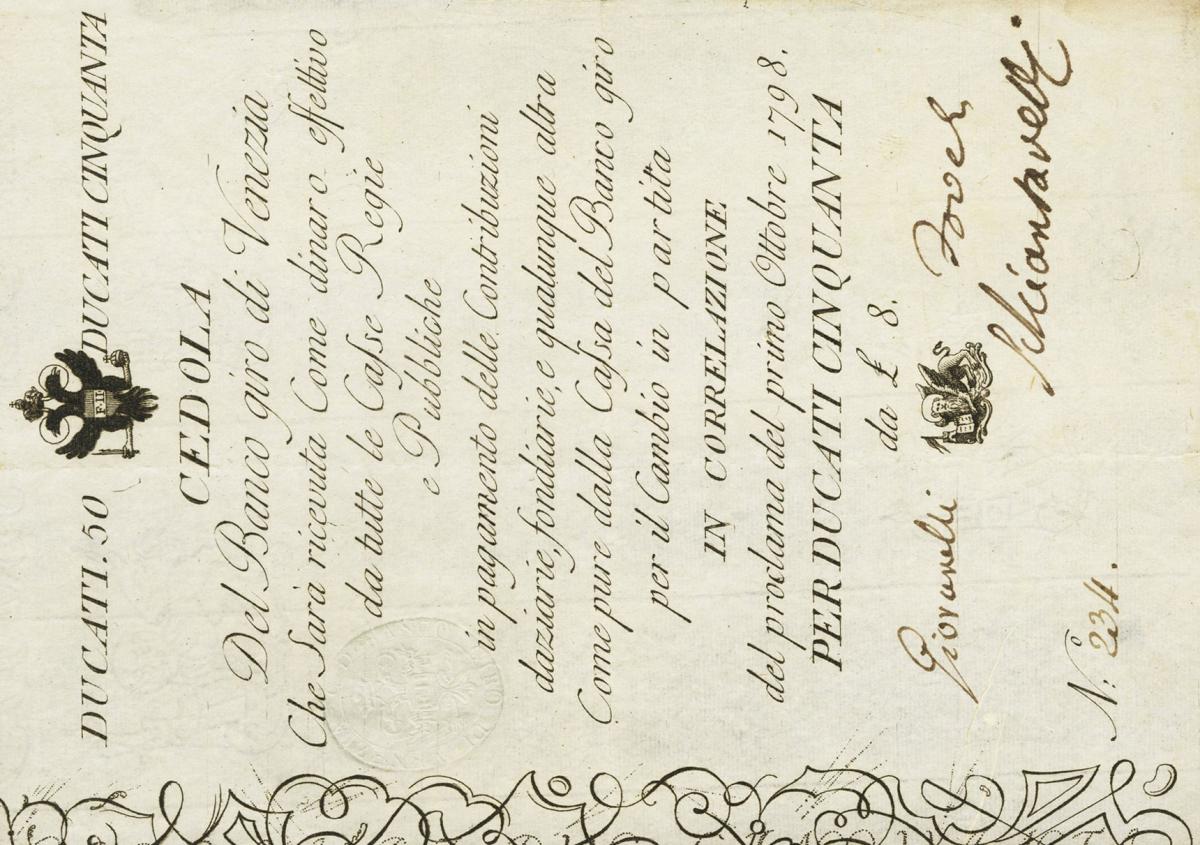 DUCATI.50 DUCATI CINQUANTA
F.II
CEDOLA
Del Banco giro di Venezia
Che Sarà ricevuta Come dinaro effettivo
da tutte le Caſse Regie
e Pubbliche
in pagamento delle Contribuzioni
daziarie, fondiarie, e qualunque altra
Come pure dalla Caſsa del Banco giro
per il Cambio in partita
IN CORRELAZIONE
del proclama del primo Ottobre 1798.
PER DUCATI CINQUANTA
da £ 8.
Giovanelli
N.º 234.